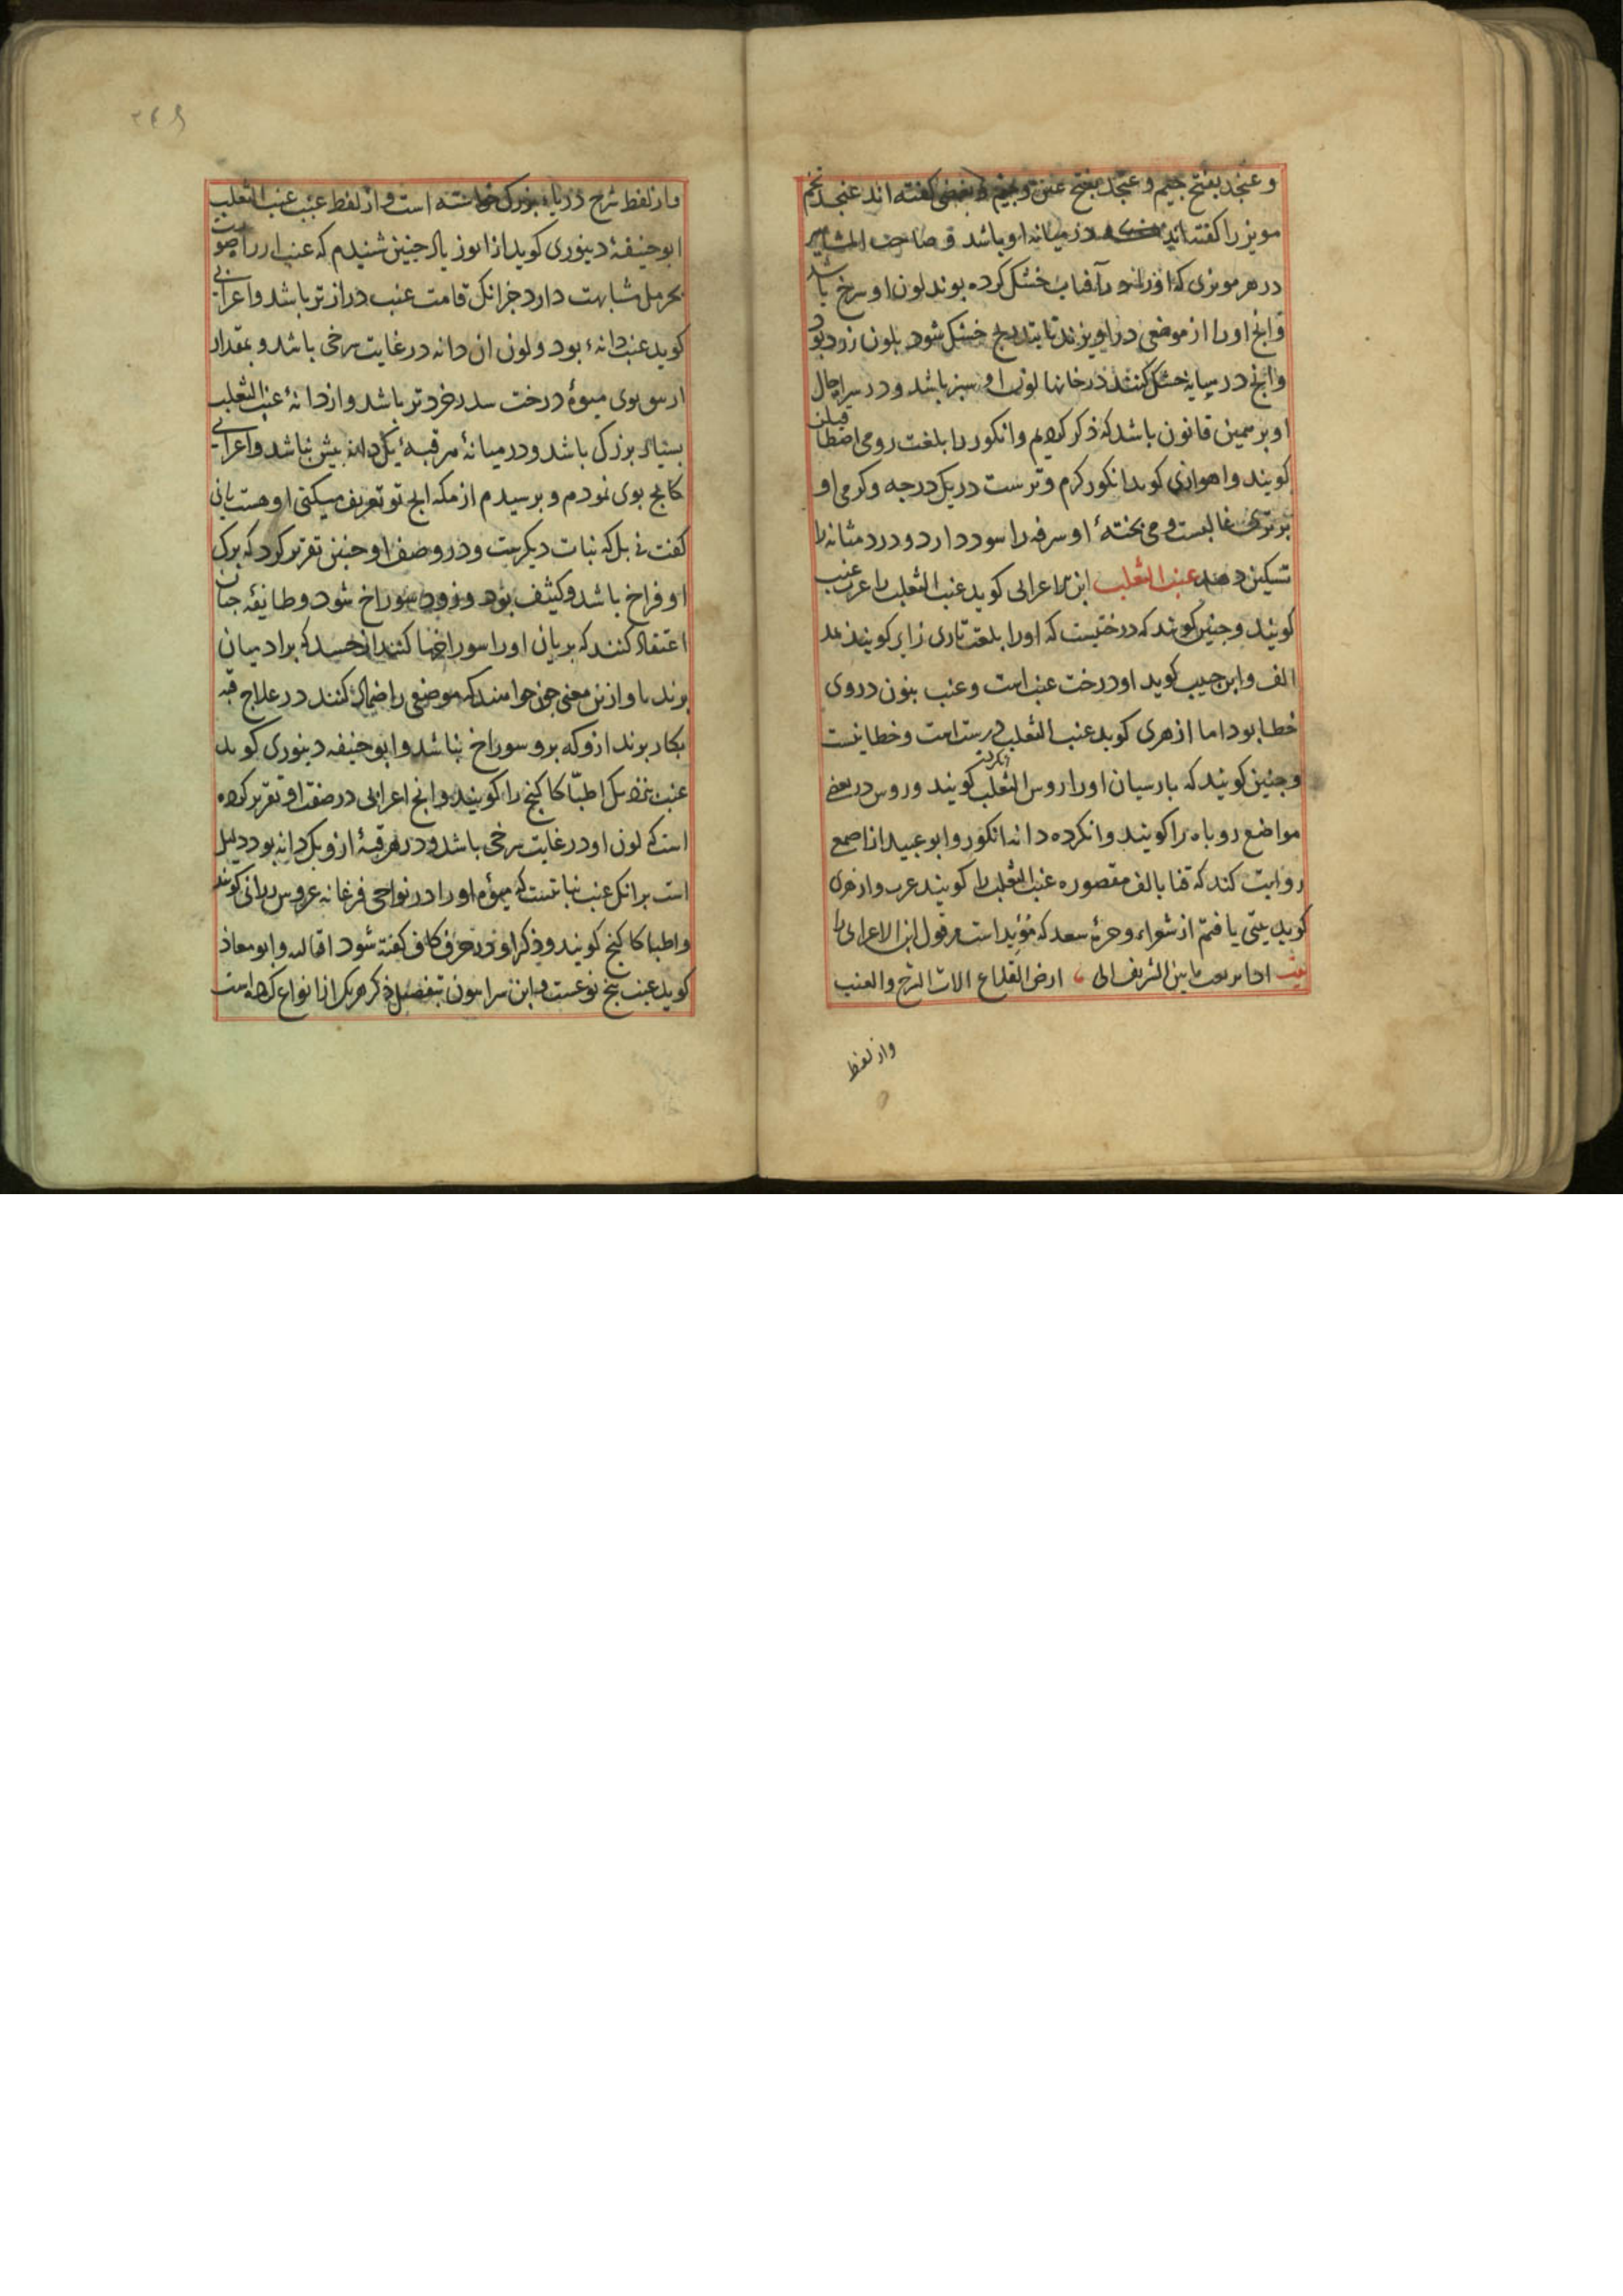 و عنجد بفتح جیم و عنجد بفتح عین و جیم و بعضی گفته اند عنجد تخم
مویز را گفته اند در میانه او باشد و صاحب المشاهیر
در هر مویزی که او را در آفتاب خشک کرده بوند لون او سرخ باشد
و انج او را از موضعی در اویزند تا بتدریج خشک شود بلون زرد بود
و انج در سایه خشک کنند در خانها لون او سبز باشد و در سایر احوال
او بر همین قانون باشد که ذکر کردیم و انکور را بلغت رومی اصطافیلن
کویند و اهوازی کوید انکور کرم و ترست در یک درجه و کرمی او
بر تری غالبست و می بخته او سرفه را سود دارد و درد مثانه را
تسکین دهد عنب الثعلب ابن الاعرابی کوید عنب الثعلب را عرب عنب
کویند و جنین کویند که درختیست که او را بلغت تازی را بر کویند بمد
الف و ابن حبیب کوید او درخت عنب است و عنب بنون در وی
خطا بود اما ازهری کوید عنب الثعلب درست است و خطا نیست
و جنین کویند که بارسیان او را روس الثعلب کویند و روس در بعضی
انکردـ
مواضع روباه را کویند و انکرده دانه انکور و ابو عبید از اصمعی
روایت کند که ثنا بالف مقصوره عنب الثعلب را کویند عرب و ازهری
کوید بیتی یافتم از شعراء وحرهٔ سعد که مؤید است مر قول ابن الاعرابی را
بیت ما بین الشریف الی ارض القلاع الات الشرح والعنب
واز لفظ
۲۴۹
واز لفظ شرح دریاء بزرک خواسته است و از لفظ عنب عنب الثعلب
ابو حنیفهٔ دینوری کوید از ابو زیاد جنین شنیدم که عنب از راه صورت
بحرمل مشابهت دارد جز انک قامت عنب درازتر باشد و اعرابی
کوید عنب دانهٔ بود و لون ان دانه در غایت سرخی باشد و بمقدار
از میوهٔ درخت سدر خردتر باشد و از دانهٔ عنب الثعلب
بسیار بزرک باشد و در میانهٔ هر قبهٔ یک دانه بیش نباشد و اعرابی
کاکنج بوی نمودم و برسیدم از مکه انج تو تعریف میکنی او هست یا نی
کفت نی بلکه نبات دیکریست و در وصف او جنین تقریر کرد که برک
او فراخ باشد و کثیف بود و زود سوراخ شود و طایفه جنان
اعتقاد کنند که بریان او را سوراخها کنند از حسد که برادمیان
برند تا و ازین معنی جون خواهند که موضعی را ضماد کنند در علاج قبه
بکار برند ازو که برو سوراخ نباشد و ابو حنیفه دینوری کوید
عنب بنزدیک اطبا کاکنج را کویند و انج اعرابی در صفت او تقریر کرده
است که لون او در غایت سرخی باشد و در هر قبهٔ ازو یک دانه بود دلیل
است برانک عنب نباتیست که میوه او را در نواحی فرغانه عروس درانی کویند
و اطبا کاکنج کویند و ذکر او در حرف کاف کفته شود ان شالله و ابو معاذ
کوید عنب پنج نوعست و ابن سرابیون بتفصیل ذکر هریک از انواع کرده است